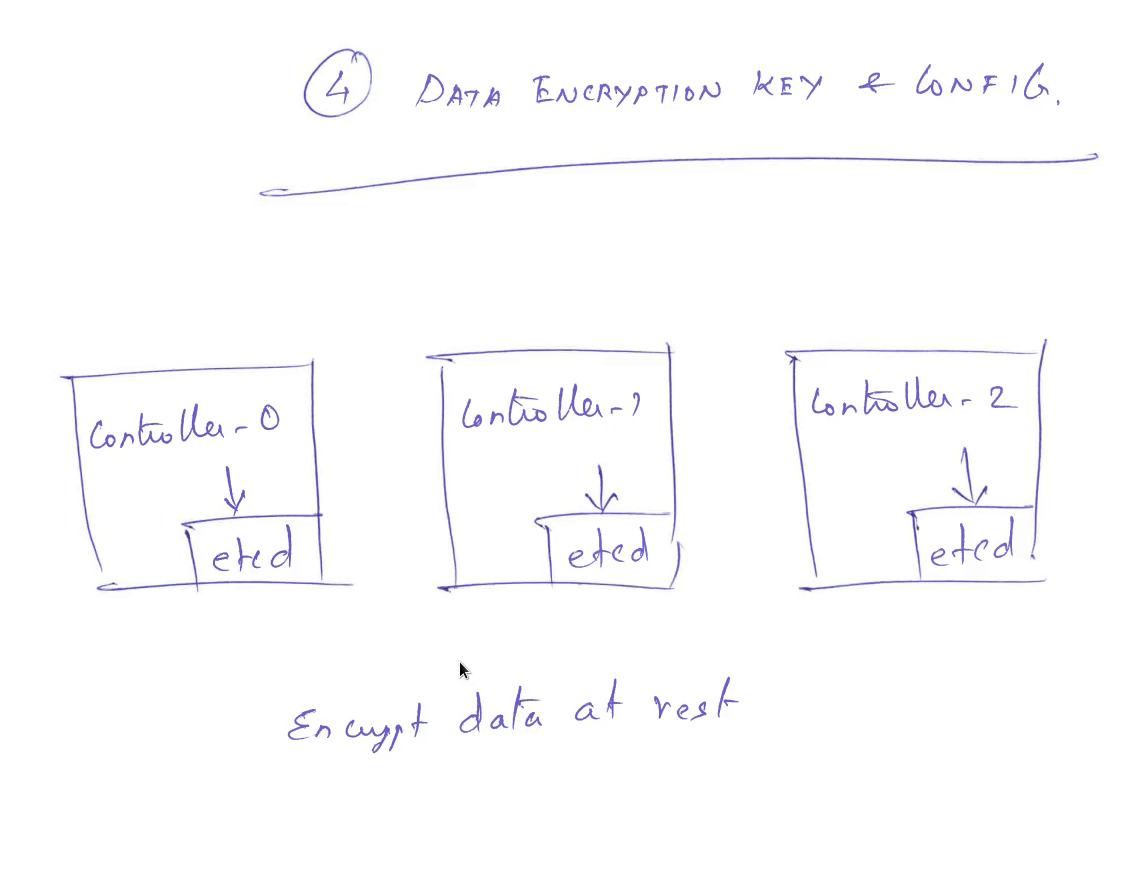 4 DATA ENCRYPTION KEY & CONFIG.
Controller-0
Controller-1
Controller-2
etcd
etcd
etcd
Encrypt data at rest